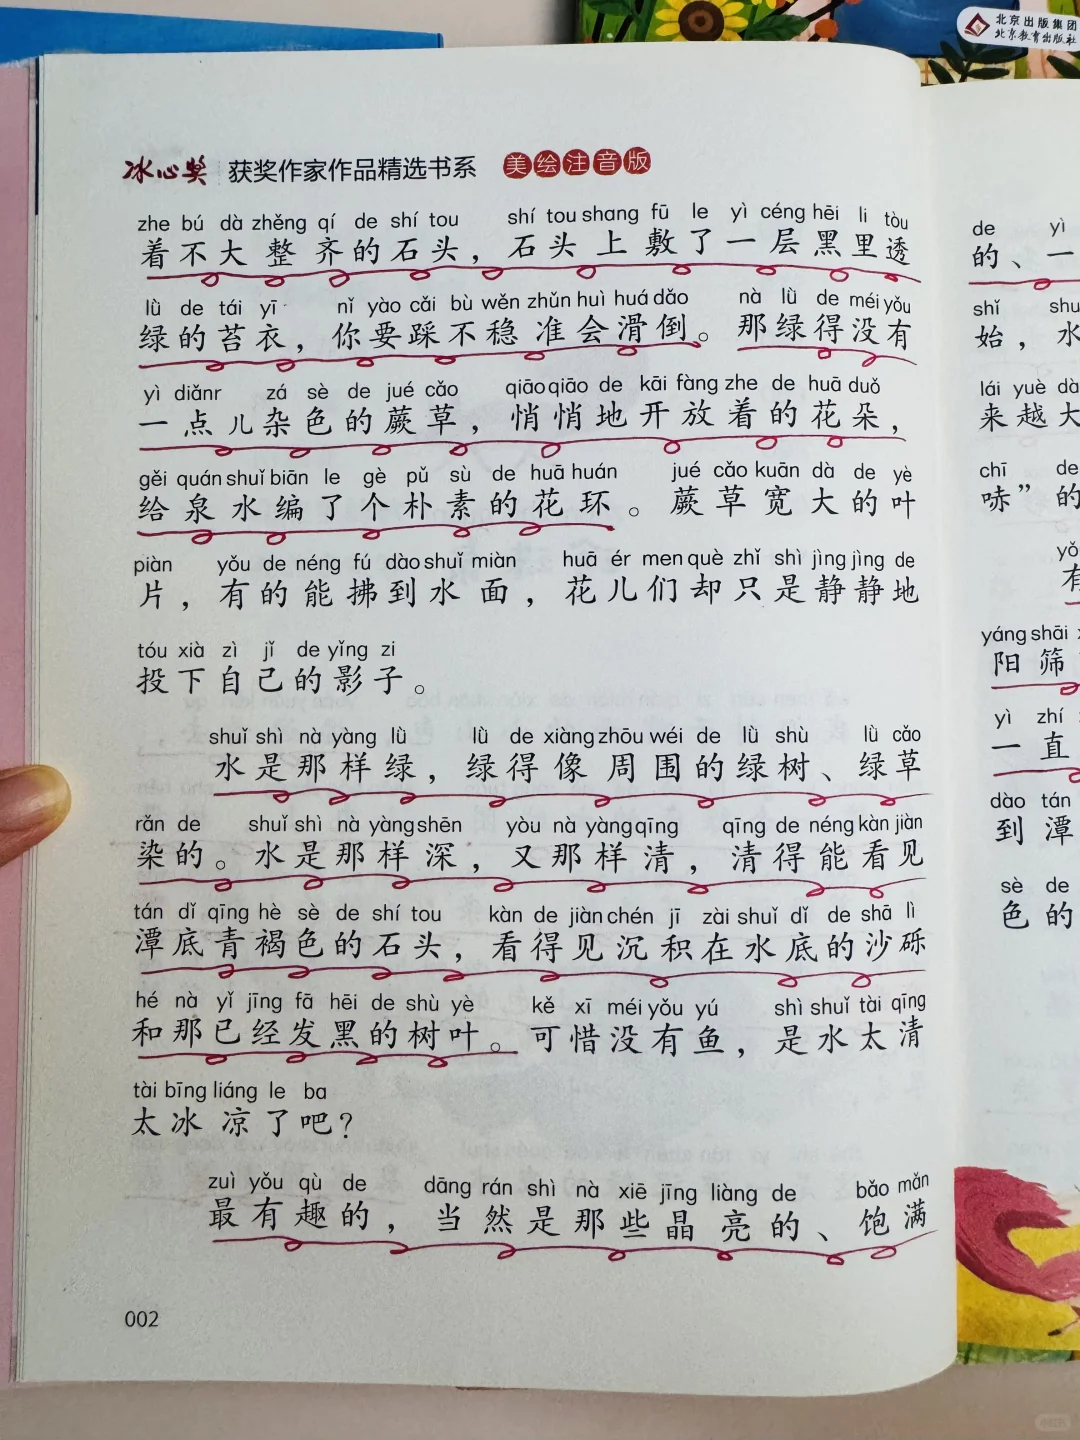 北京出版集团
北京教育出版社
冰心奖 获奖作家作品精选书系 美绘注音版
zhe bú dà zhěng qí de shí tou shí tou shang fū le yì céng hēi li tòu
着不大整齐的石头，石头上敷了一层黑里透
lǜ de tái yī nǐ yào cǎi bù wěn zhǔn huì huá dǎo nà lǜ de méi yǒu
绿的苔衣，你要踩不稳准会滑倒。那绿得没有
yì diǎnr zá sè de jué cǎo qiāo qiāo de kāi fàng zhe de huā duǒ
一点儿杂色的蕨草，悄悄地开放着的花朵，
gěi quán shuǐ biān le gè pǔ sù de huā huán jué cǎo kuān dà de yè
给泉水编了个朴素的花环。蕨草宽大的叶
piàn yǒu de néng fú dào shuǐ miàn huā ér men què zhǐ shì jìng jìng de
片，有的能拂到水面，花儿们却只是静静地
tóu xià zì jǐ de yǐng zi
投下自己的影子。
shuǐ shì nà yàng lǜ lǜ de xiàng zhōu wéi de lǜ shù lǜ cǎo
水是那样绿，绿得像周围的绿树、绿草
rǎn de shuǐ shì nà yàng shēn yòu nà yàng qīng qīng de néng kàn jiàn
染的。水是那样深，又那样清，清得能看见
tán dǐ qīng hè sè de shí tou kàn de jiàn chén jī zài shuǐ dǐ de shā lì
潭底青褐色的石头，看得见沉积在水底的沙砾
hé nà yǐ jīng fā hēi de shù yè kě xī méi yǒu yú shì shuǐ tài qīng
和那已经发黑的树叶。可惜没有鱼，是水太清
tài bīng liáng le ba
太冰凉了吧？
zuì yǒu qù de dāng rán shì nà xiē jīng liàng de bǎo mǎn
最有趣的，当然是那些晶亮的、饱满
002
de yì
的、一
shǐ shu
始，水
lái yuè dà
来越大
chī de
哧”的
yǒ
有
yáng shāi
阳筛
yì zhí
一直
dào tán
到潭
sè de
色的